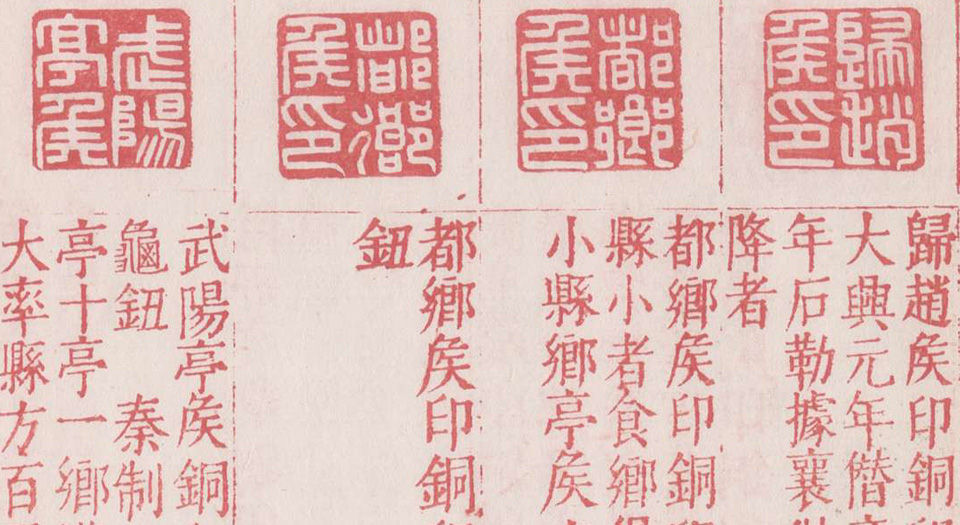 歸趙矦印
歸趙矦印銅
大興元年僭
年石勒據襄
降者
都鄉矦印
都鄉矦印銅
縣小者食鄉
小縣鄉亭矦
都鄉矦印
都鄉矦印銅
鈕
武陽亭矦
武陽亭矦銅
龜鈕　秦制
亭十亭一鄉
大率縣方百